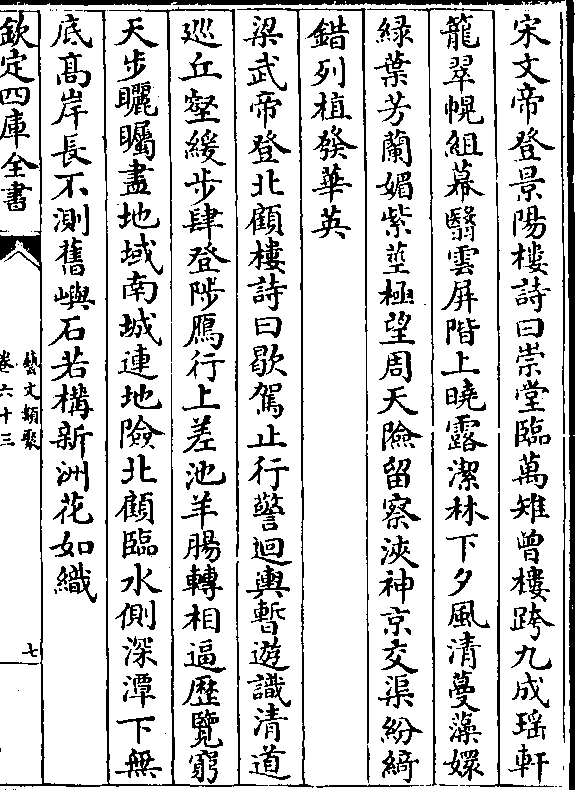 宋文帝登景陽樓詩曰崇堂臨萬雉曾樓跨九成瑶軒
籠翠幌組幕翳雲屏階上曉露潔林下夕風清蔓藻嬛
緑葉芳蘭媚紫莖極望周天險留察浹神京交渠紛綺
錯列植發華英
梁武帝登北顧樓詩曰歇駕止行警迴輿暫遊識清道
巡丘壑緩步肆登陟鴈行上差池羊腸轉相逼歷覽窮
天步曬矚盡地域南城連地險北顧臨水側深潭下無
底髙岸長不測舊嶼石若構新洲花如織
欽定四庫全書
藝文類聚
卷六十三
七